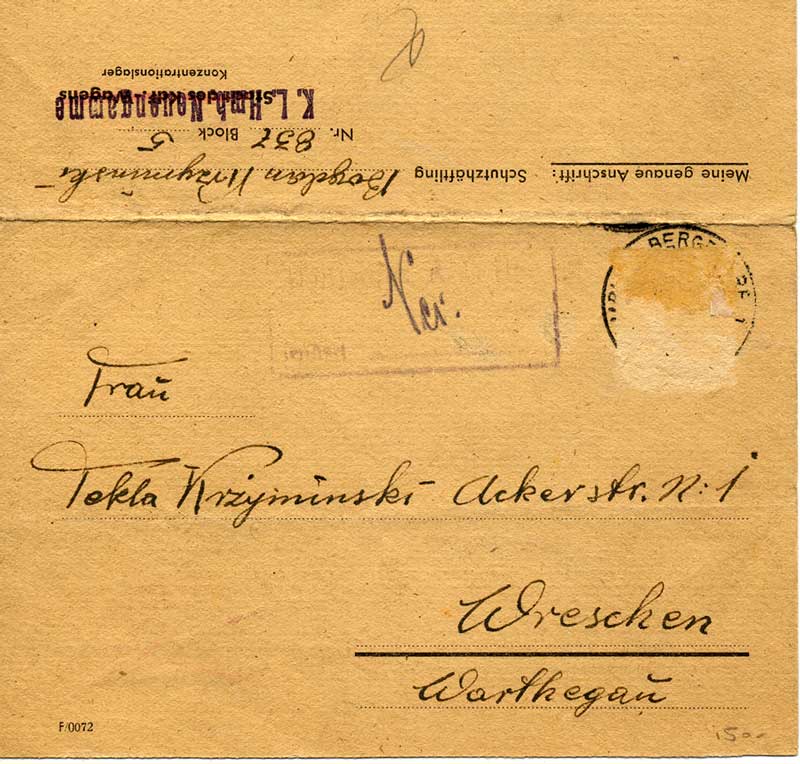 Meine genaue Anschrift: Schutzhäftling Bogdan Krżyminski
Nr. 837 Block 5
K. L. Hmb. Neuengamme
Konzentrationslager
BERGE
Frau
Tekla Krżyminski Ackerstr. N: 1
Wreschen
Warthegau
F/0072